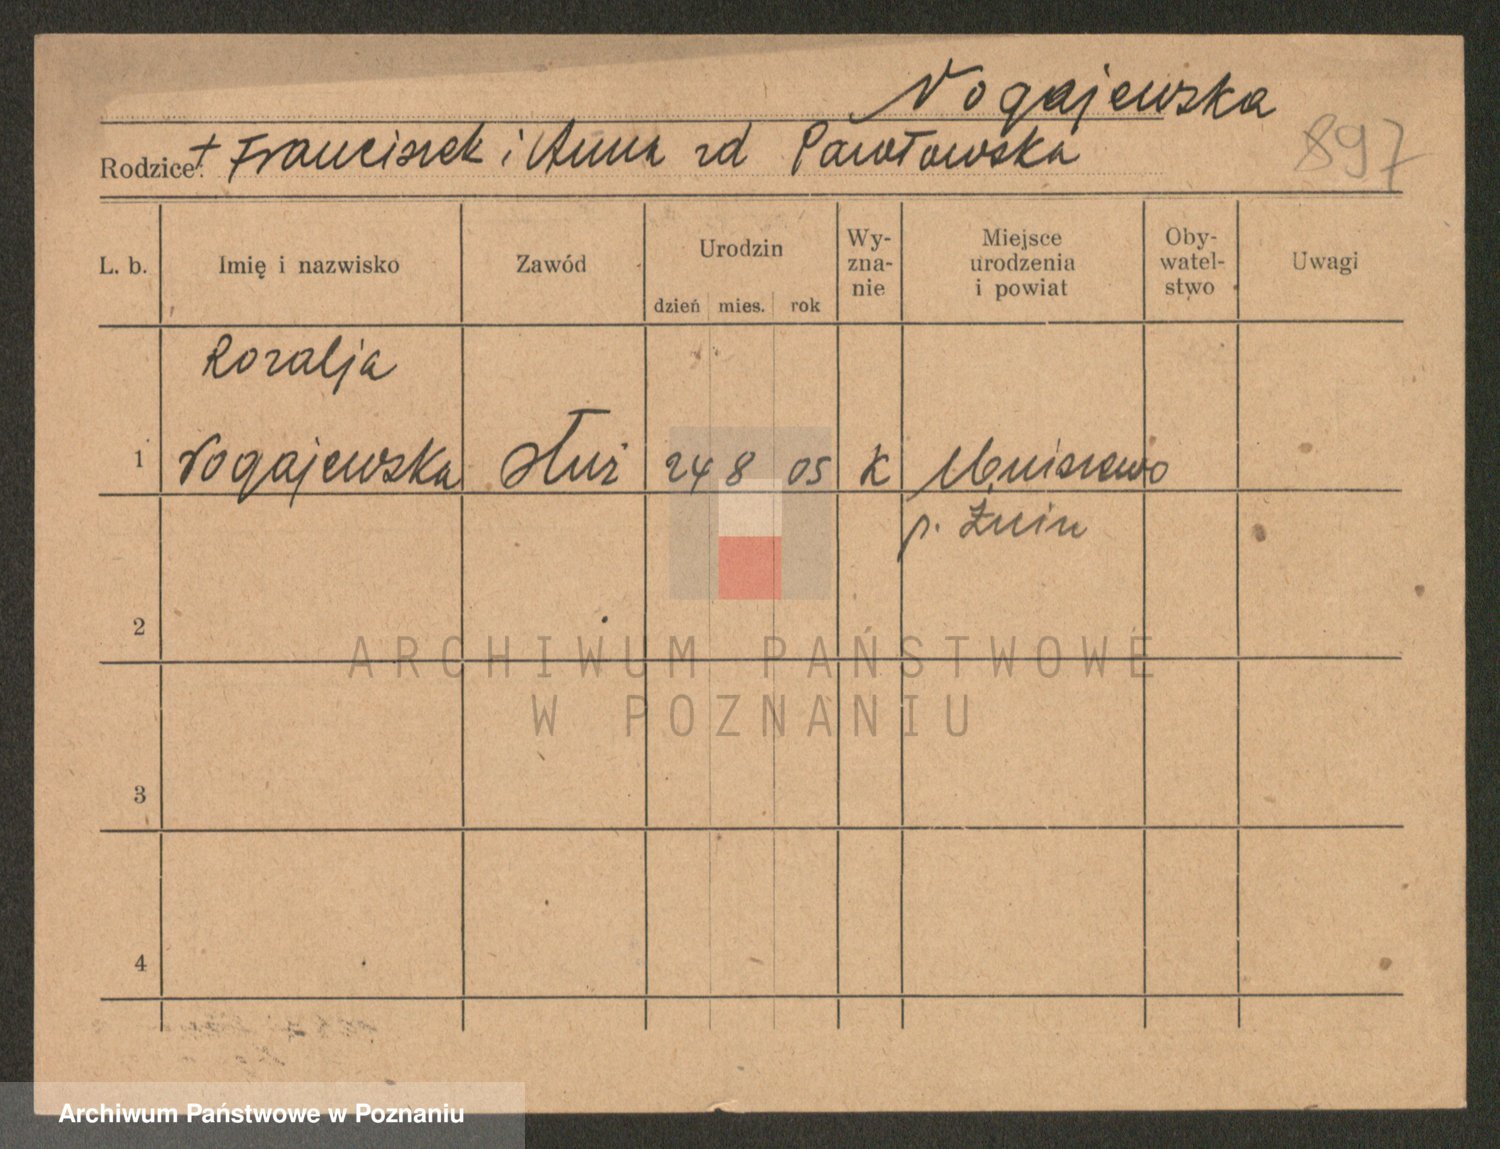 Nogajewska
Rodzice: + Franciszek i Anna zd Pawłowska 897
L. b. Imię i nazwisko Zawód Urodzin dzień mies. rok Wy-zna-nie Miejsce urodzenia i powiat Oby-watel-stwo Uwagi
Rozalja
1 Nogajewska służ 24 8 05 K Mniszewo
p. Żnin
2
ARCHIWUM PAŃSTWOWE
W POZNANIU
3
4
Archiwum Państwowe w Poznaniu